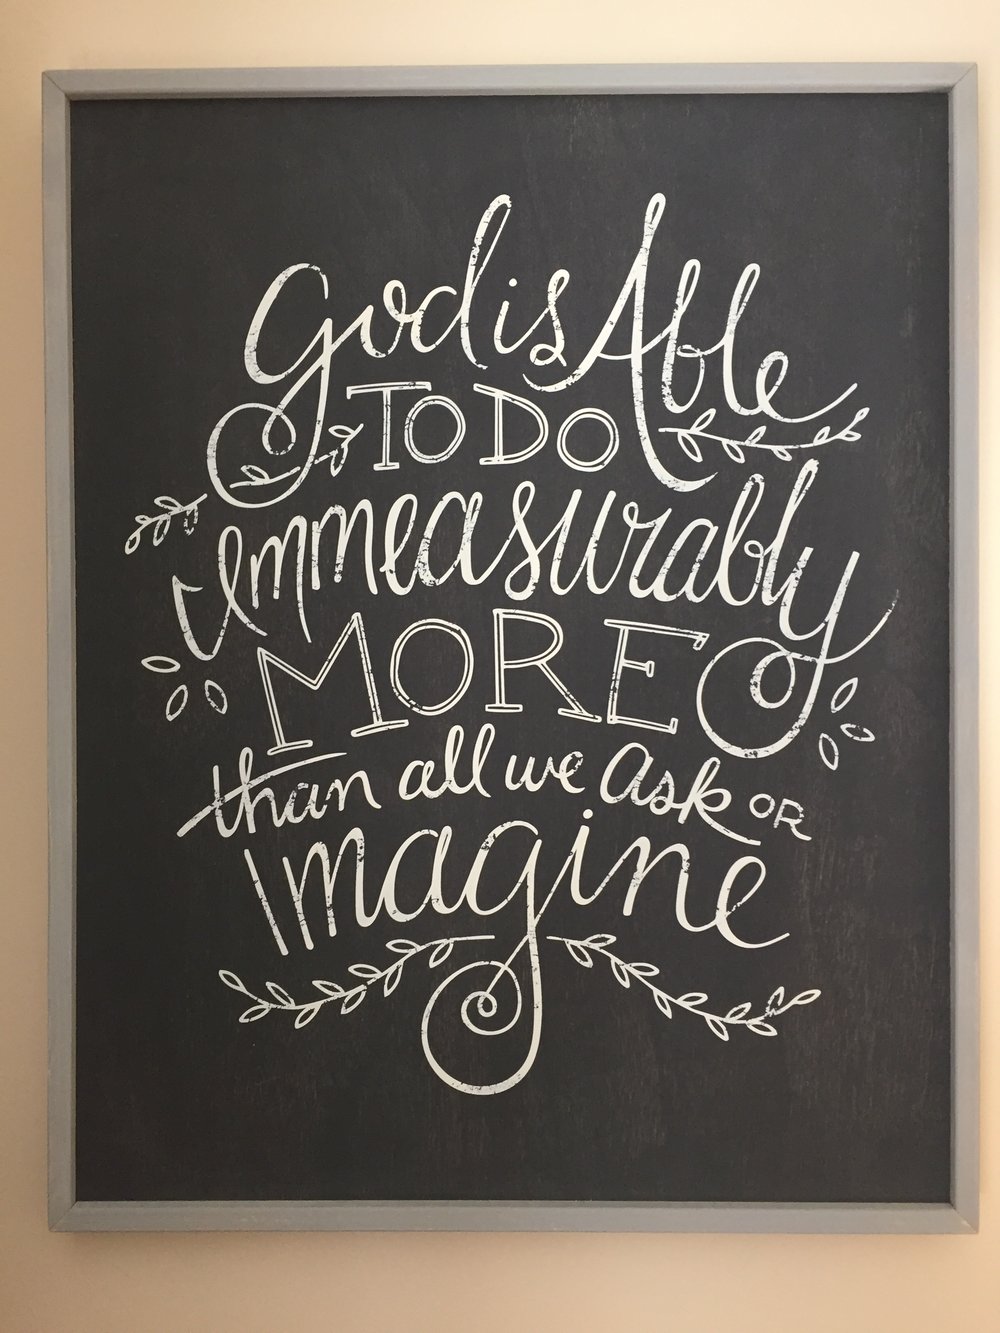 God is Able
TO DO
Immeasurably
MORE
than all we ask OR
Imagine